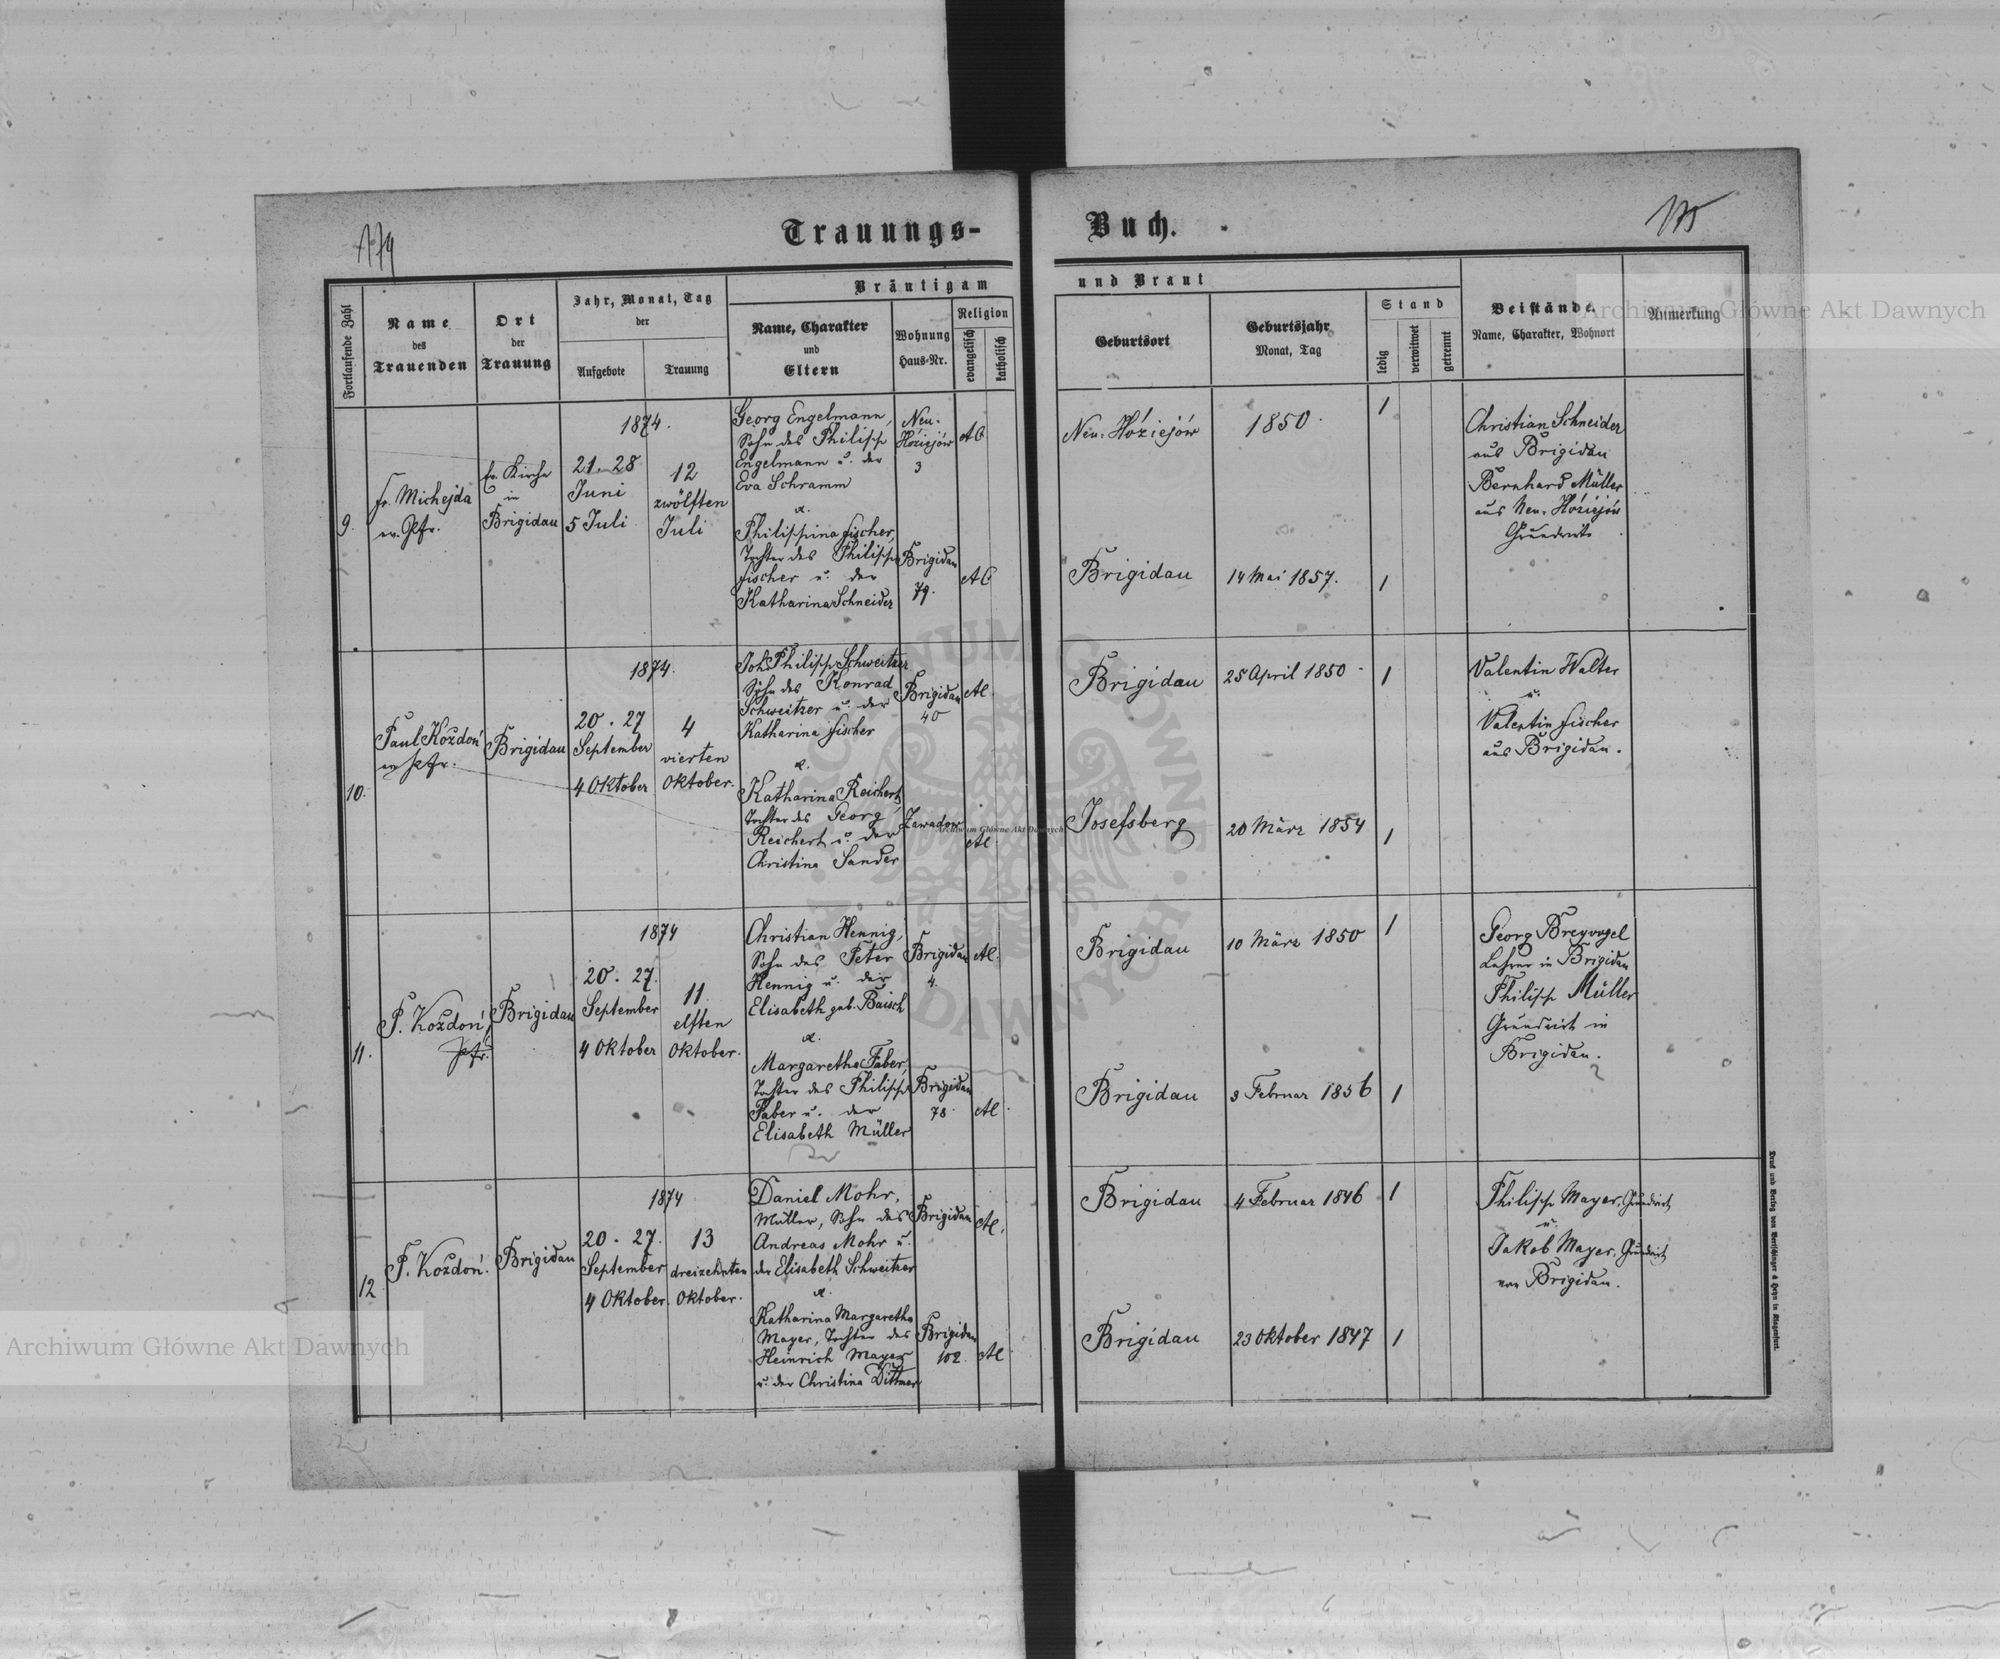 174
Trauungs-
Buch.
175
Fortlaufende Zahl
Name
des
Trauenden
Ort
der
Trauung
Jahr, Monat, Tag
der
Aufgebote
Trauung
Bräutigam
Name, Charakter
und
Eltern
Wohnung
Haus-Nr.
Religion
evangelisch
katholisch
und Braut
Geburtsort
Geburtsjahr
Monat, Tag
Stand
ledig
verwitwet
getrennt
Beistände
Name, Charakter, Wohnort
Anmerkung
9.
Fr. Michejda
ev. Pfr.
Ev. Kirche
in
Brigidau
1874.
21. 28
Juni
5 Juli
12
zwölften
Juli
Georg Engelmann,
Sohn des Philipp
Engelmann u. der
Eva Schramm
u.
Philippina Fischer,
Tochter des Philipp
Fischer u. der
Katharina Schneider
Neu-
Hóziejów
3
Brigidau
79.
AC
AC
Neu-Hóziejów
1850.
1
Brigidau
14 Mai 1857.
1
Christian Schneider
aus Brigidau
Bernhard Müller
aus Neu-Hóziejów
Grundwirte
10.
Paul Kozdoń
ev Pfr.
Brigidau
1874.
20. 27
September
4 Oktober
4
vierten
Oktober.
Joh. Philipp Schweitzer
Sohn des Konrad
Schweitzer u. der
Katharina Fischer
u.
Katharina Reichert,
Tochter des Georg
Reichert u. der
Christina Sander
Brigidau
40
Zawadow
AC.
AC.
Brigidau
25 April 1850
1
Josefsberg
20 März 1854
1
Valentin Walter
u.
Valentin Fischer
aus Brigidau.
11.
P. Kozdoń,
Pfr.
Brigidau
1874
20. 27.
September
4 Oktober
11.
elften
Oktober.
Christian Hennig,
Sohn des Peter
Hennig u. der
Elisabeth geb. Baisch
u.
Margaretha Faber,
Tochter des Philipp
Faber u. der
Elisabeth Müller
Brigidau
4.
Brigidau
78.
AC.
AC.
Brigidau
10 März 1850
1
Brigidau
3 Februar 1856
1
Georg Breyvogel
Lehrer in Brigidau
Philipp Müller
Grundwirt in
Brigidau.
12
P. Kozdoń.
Brigidau
1874
20. 27.
September
4 Oktober.
13
dreizehnten
Oktober.
Daniel Mohr,
Müller, Sohn des
Andreas Mohr u.
der Elisabeth Schweitzer
u.
Katharina Margaretha
Mayer, Tochter des
Heinrich Mayer
u. der Christina Dittmer
Brigidau
Brigidau
102.
AC.
AC
Brigidau
4 Februar 1846
1
Brigidau
23 Oktober 1847
1
Philipp Mayer, Grundwirt
u.
Jakob Mayer, Grundwirt
von Brigidau.
Druck und Verlag von Bertschinger & Heyn in Klagenfurt.
Archiwum Główne Akt Dawnych
Archiwum Główne Akt Dawnych
Archiwum Główne Akt Dawnych
ARCHIWUM GŁÓWNE AKT DAWNYCH